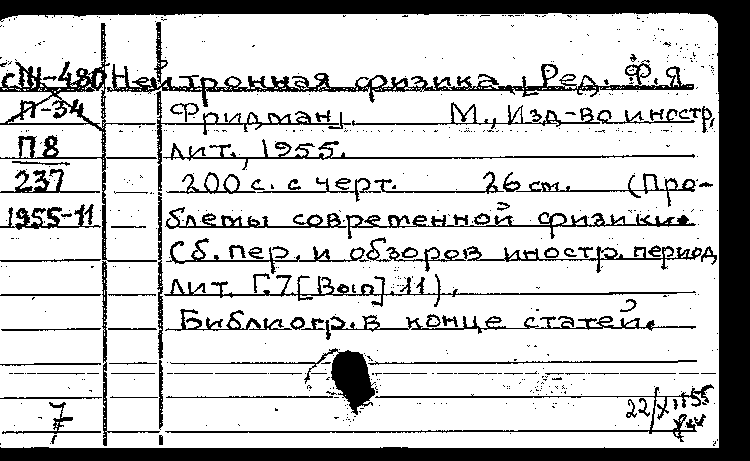 сШ-480 Нейтронная физика. [Ред. Ф.Я
П-34 Фридман]. М., Изд-во иностр.
П8 лит., 1955.
237 200 с. с черт. 26 см. (Про-
1955-11 блемы современной физики.
Сб. пер. и обзоров иностр. период.
лит. Г.7 [Вып]. 11).
Библиогр. в конце статей.
7 22/XII 55